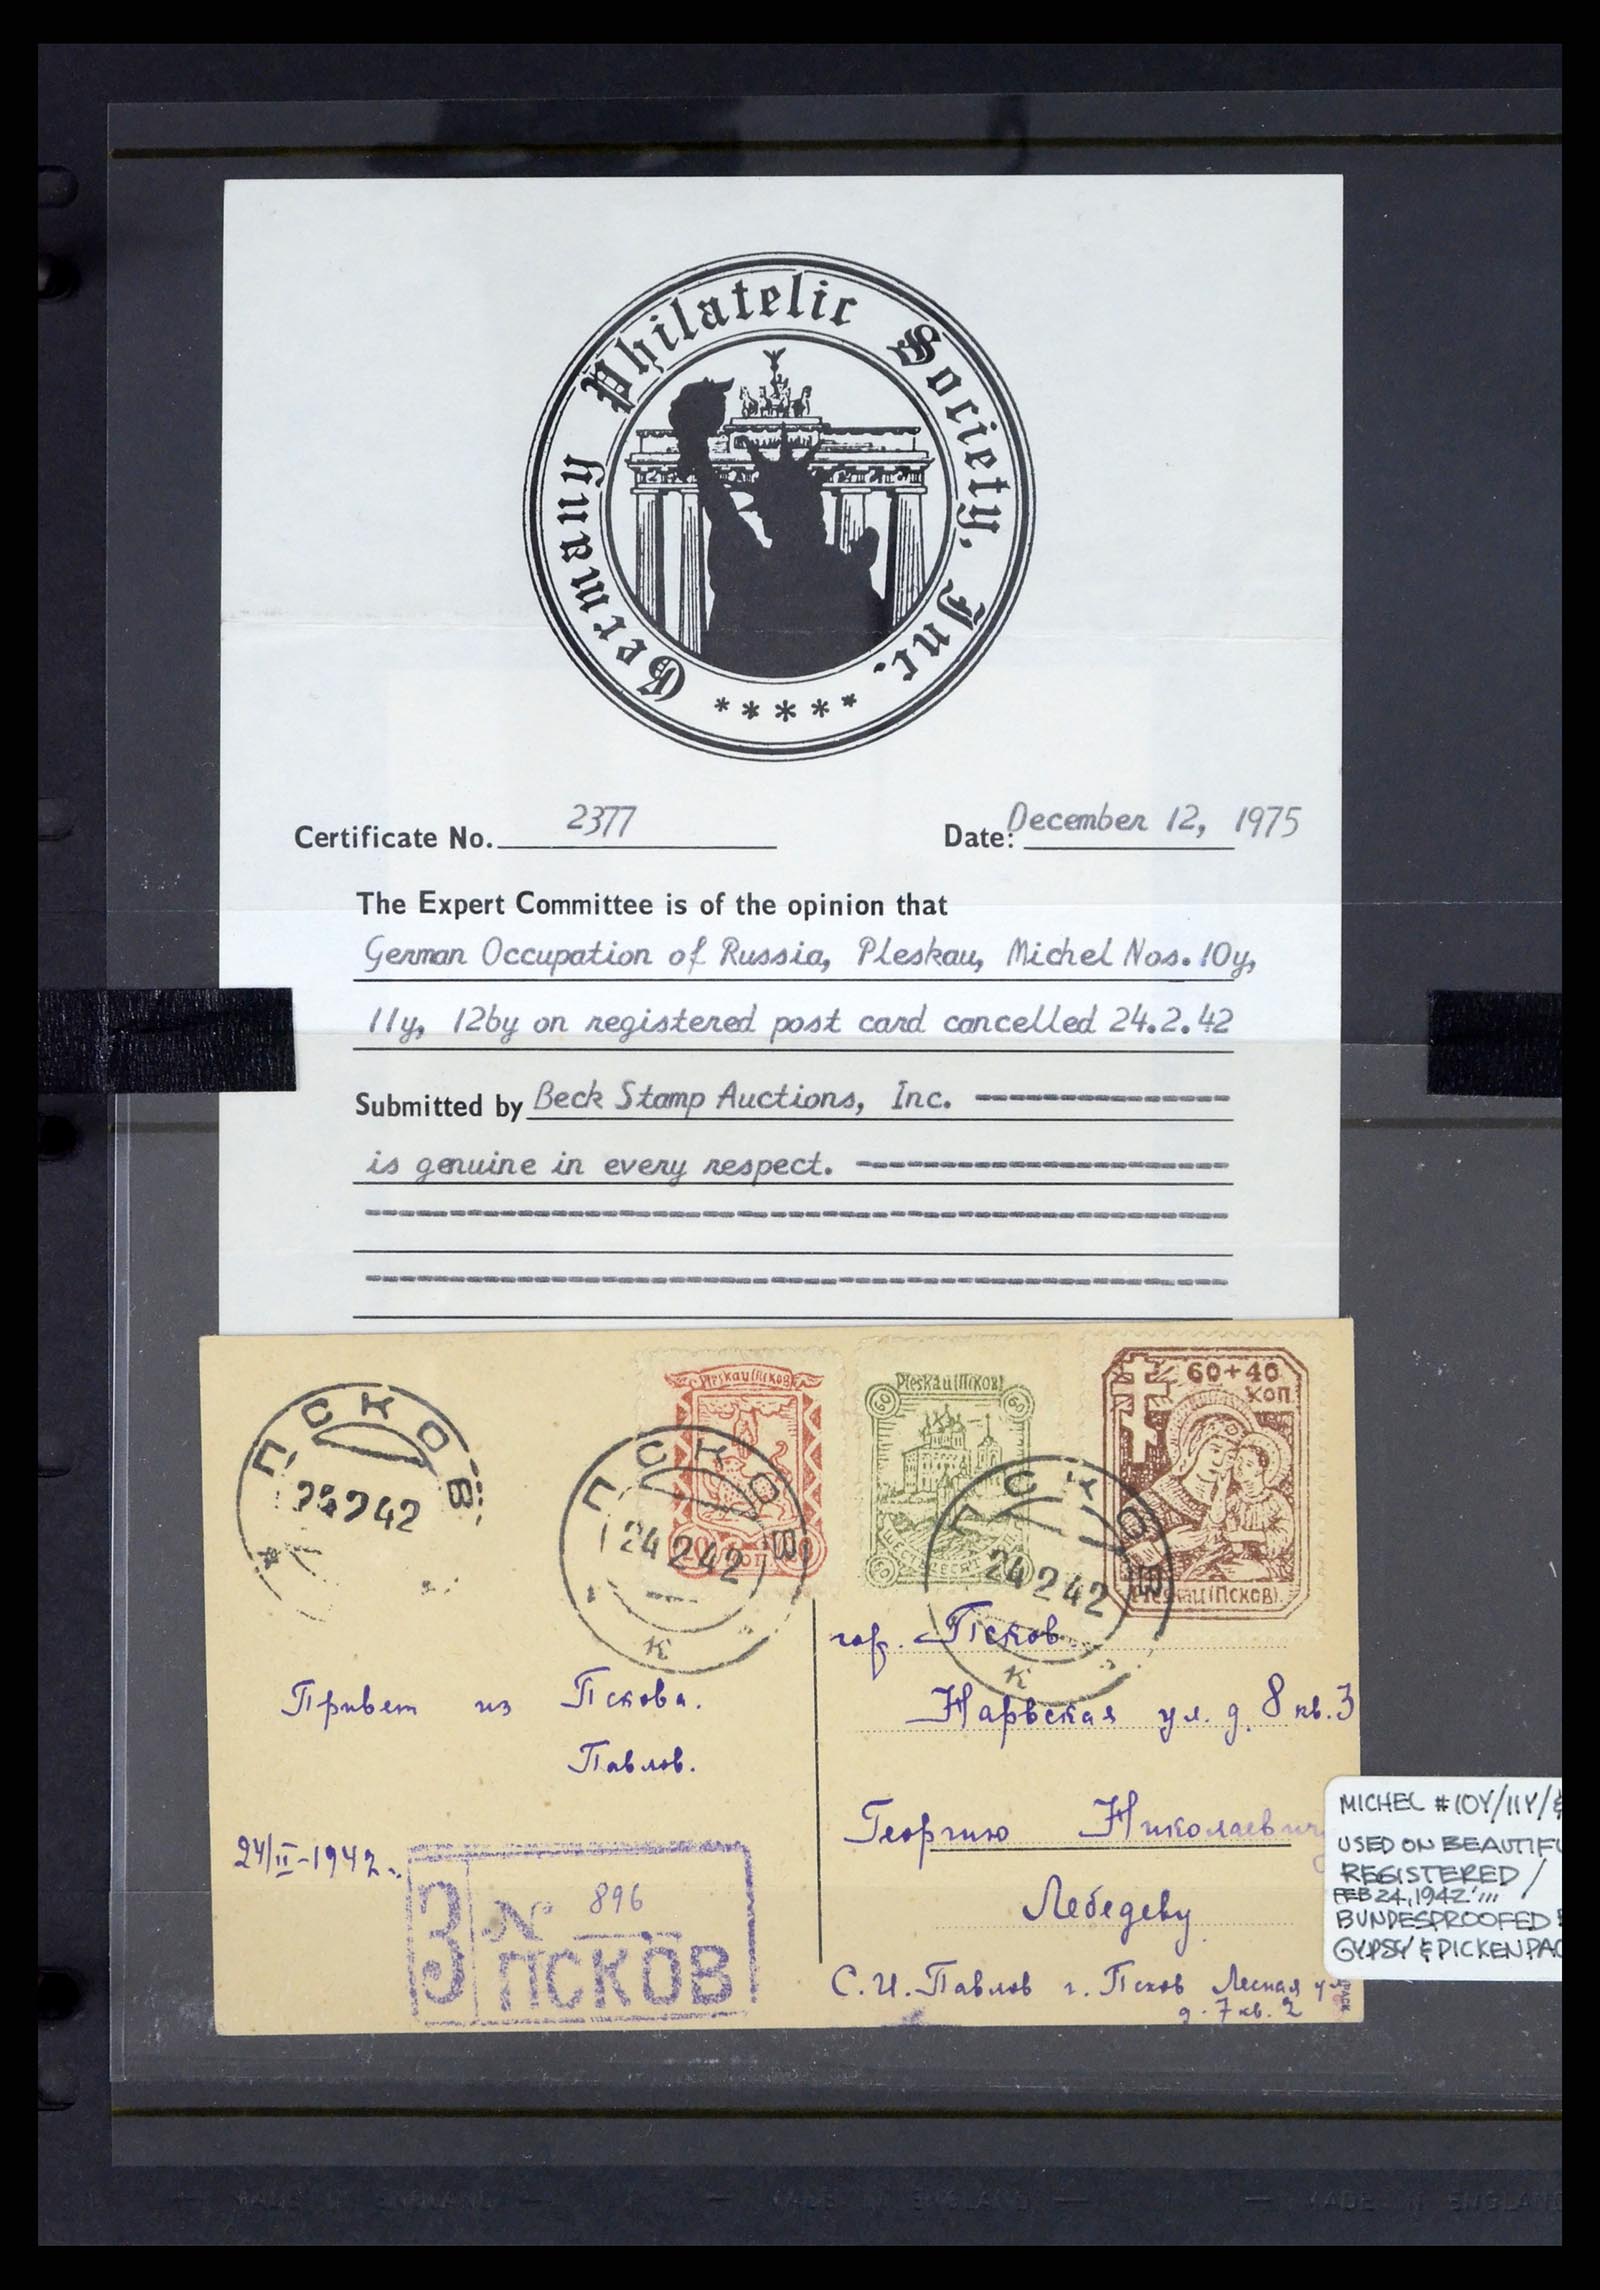 Germany Philatelic Society, Inc.
*****
Certificate No. 2377
Date: December 12, 1975
The Expert Committee is of the opinion that
German Occupation of Russia, Pleskau, Michel Nos. 10y,
11y, 12by on registered post card cancelled 24.2.42
Submitted by Beck Stamp Auctions, Inc.
is genuine in every respect.
Pleskau (Псков)
Pleskau (Псков)
60
60
60+40
КОП
Pleskau (Псков).
ПСКОВ
24 2 42
ПСКОВ
24 2 42
К
ПСКОВ
24 2 42
К
гор. Псков.
Нарвская ул. д. 8 кв. 3
Георгию Николаевичу
Лебедеву
С. И. Павлов г. Псков Лесная ул
д. 7 кв. 2
Привет из Пскова.
Павлов.
24/II-1942.
З № 896
ПСКОВ
MICHEL #10Y/11Y/&
USED ON BEAUTIFU
REGISTERED/
FEB 24, 1942
BUNDESPROOFED
GYPSY & DICKENPAC
MADE IN ENGLAND — MADE IN ENGLAND — MADE IN ENGLAND